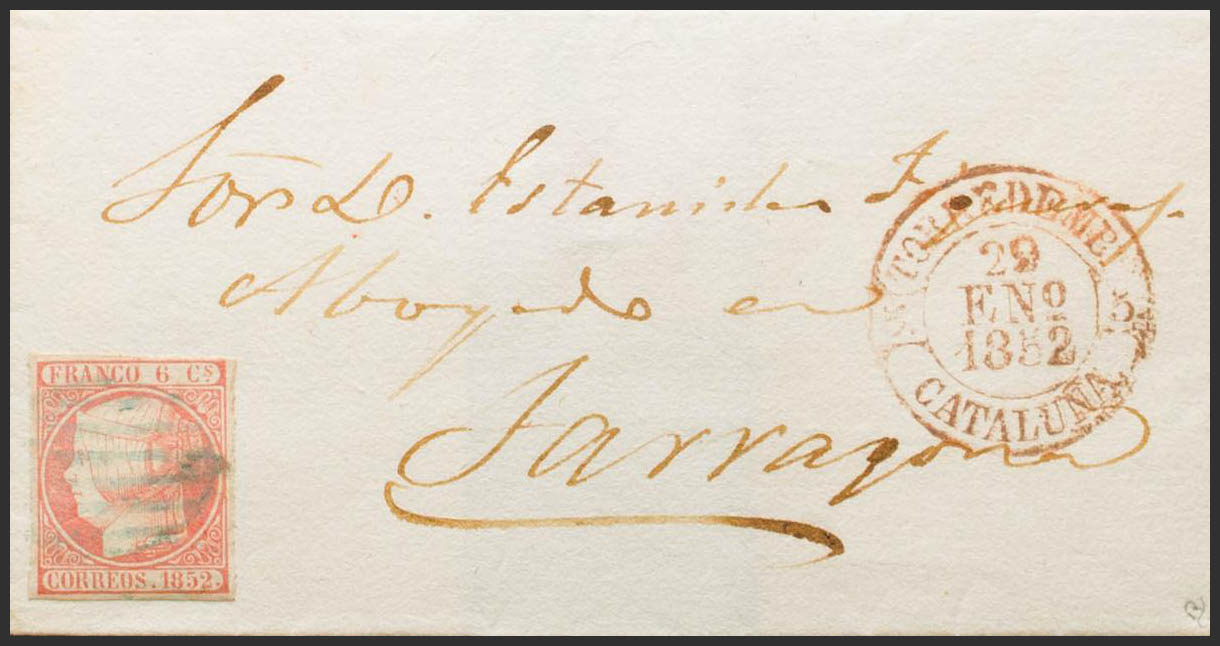 Sor D. Estanislao
Abogado en
Tarragona
TORREDEMB
29
ENO
1852
5
CATALUÑA
FRANCO 6 CS
CORREOS. 1852.